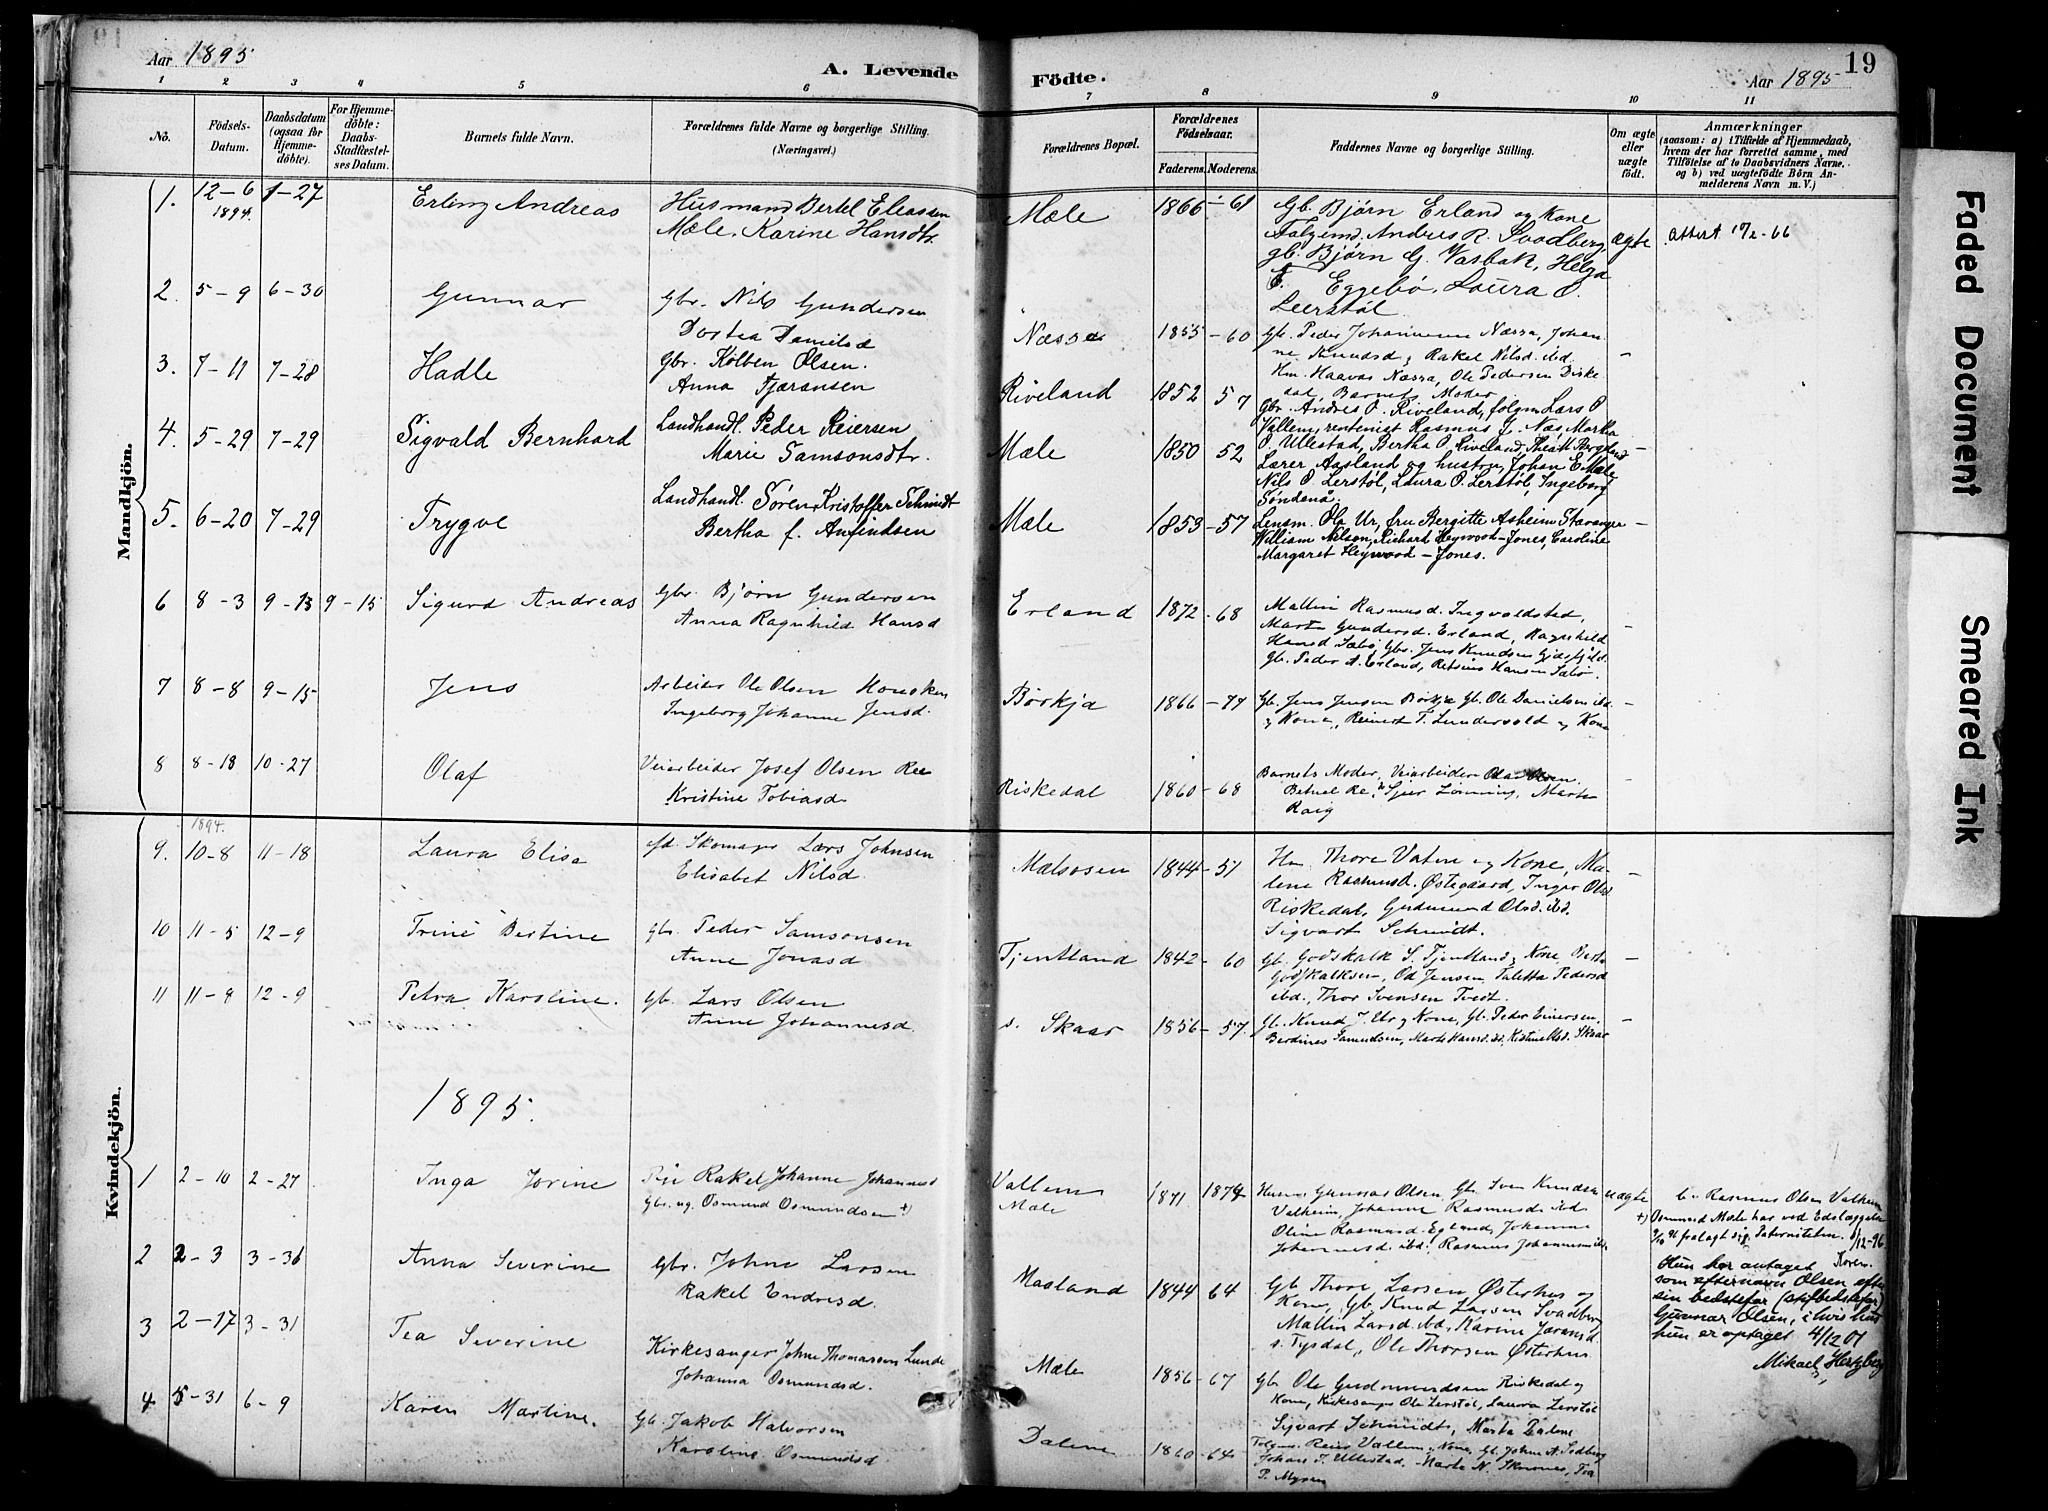 Aar 1895
A. Levende
Födte.
Aar 1895
19
1 2 3 4 5 6 7 8 9 10 11
No.
Födsels-Datum.
Daabsdatum (ogsaa för Hjemmedöbte).
For Hjemmedöbte: Daabs-Stadfæstelses Datum.
Barnets fulde Navn.
Forældrenes fulde Navne og borgerlige Stilling.
(Næringsvei.)
Forældrenes Bopæl.
Forældrenes Födselsaar.
Faderens. Moderens.
Faddernes Navne og borgerlige Stilling.
Om ægte eller uægte födt.
Anmærkninger
(saasom: a) i Tilfælde af Hjemmedaab, hvem der har forrettet samme, med Tilföielse af to Daabsvidners Navne, og b) ved uægtefödte Börn Anmelderens Navn m. V.)
Mandkjön.
1. 12-6 1894. 1-27 Erling Andreas
Husmand Bertel Eliassen
Mæle, Karine Hansdtr.
Mæle 1866 - 61
Gb. Bjørn Erland og Kone
Anders R. Svadberg
gb. Bjørn G. Vasbak, Helga
Eggebø, Laura O.
Leerstøl
ægte
Attest 17/2-66
2. 5-9 6-30 Gunnar
Gbr. Nils Gundersen
Dortea Danielsd
Næssa 1855-60
Gb. Peder Johannesen Næssa, Johan-
ne Knudsd, Rakel Nilsd. ibd.
Hm. Haavar Næssa, Ole Pedersen Riske
dal, Barnets Moder
-
3. 7-11 7-28 Hadle
Gbr. Kolben Olsen.
Anna Tjæransen
Riveland 1852 57
Gbr. Andres O. Riveland, følgm Lars O
Vallem, rentenist Rasmus J. Næs, Martha
O. Ullestad, Bertha O. Riveland, Thea M. Bergland
4. 5-29 7-29 Sigvald Bernhard
Landhandl. Peder Reiersen
Marie Samsonsdtr.
Mæle 1850 52
Lærer Aasland og hustru, Johan E. Mæle
Nils O. Lerstøl, Laura O. Lerstøl, Ingeborg
Søndenå.
-
5. 6-20 7-29 Trygve
Landhandl. Søren Kristoffer Schmidt
Bertha f. Anfindsen
Mæle 1853-57
Lensm. Ole Ur, fru Bergitte Asheim Stavanger
William Nilsen, Richard Heywood-Jones, Caroline
Margaret Heywood-Jones.
-
6 8-3 9-13 9-15 Sigurd Andreas
Gbr. Bjørn Gundersen
Anna Ragnhild Hansd
Erland 1872-68
Mallin Rasmusd. Ingvaldstad,
Marta Gundersd. Erland, Ragnhild
Hansd Sæbø, Gbr. Jens Knudsen
Gb. Peder A. Erland, Hansen Sæbø.
-
7 8-8 9-15 Jens
Arbeider Ole Olsen
Ingeborg Johanne Jensd.
Børkja 1866-74
Gb. Jens Jensen Børkja, Gb. Ole Danielsen ibd
og Kone, Reinert T. Lundervold og Kone
-
8 8-18 10-27 Olaf
Veiarbeider Josef Olsen Re
Kristine Tobiasd
Riskedal 1860-68
Barnets Moder, Veiarbeider Olsen
Betuel Re, Sjur Lønning, Marta
Raig
-
Kvindekjön.
1894.
9. 10-8 11-18 Laura Elisa
fd. Skomager Lars Johnsen
Elisabet Nilsd.
Mælsosen 1844-51
Hm Thore Vatne og Kone, Ma-
lene Rasmusd. Østegaard, Inger Olsd
Riskedal, Gudmund Olsd. ibd.
Sigvart Schmidt.
-
10 11-5 12-9 Trine Bertine
gbr. Peder Samsonsen
Anne Jonasd
Tjentland 1842-60
Gb. Godskalk S. Tjentland og Kone, Berta
Godskalksen, Od Jensen, Taletta Pedersd
ibd., Thor Svensen Tvedt.
-
11 11-8 12-9 Petra Karoline.
Gb. Lars Olsen
Anne Johannesd.
s. Skaar 1856-57.
Gb. Knud J. Ur og Kone, Gb. Peder Einersen.
Berdines Samuelsen, Marte Hansd. ibd, Skaar
-
1895.
1 2-10 2-27 Inga Jorine
Pige Rakel Johanne Johannesd
Gbr. ug. Osmund Osmundsen +)
Vallem
Mæle
1871 1874
Husm Gunnar Olsen, Gb. Sven Knudsen
Valheim, Johanne Rasmusd. ibd
Oline Rasmusd. Egland, Johanne
Johannesd. ibd., Rasmus Johannesen ibd.
uægte
Rasmus Olsen Valheim
+) Osmund Mæle har ved Edslæggelse
9/10 96 fralagt sig Paterniteten. 1/12-96
Koren.
Hun har antaget
som efternavn Olsen efter
sin bedstefar (stifbedstefar)
Gunnar Olsen, i hvis hus
hun er optaget 4/12 07
Mikael Hertzberg
2 2-3 3-36 Anna Severine
Gbr. Johne Larsen
Rakel Endresd.
Maaland 1844 64
Gb. Thore Larsen Østerhus og
Kone, Gb. Knud Larsen Svadberg
Mallin Larsd. ibd, Karine Jøransd
s. Tysdal, Ole Thorsen Østerhus
3 2-17 3-31 Tea Severine
Kirkesanger Johne Thomassen Lunde
Johanna Osmundsd.
Mæle 1856-67
Gbr. Ole Gudmundsen Riskedal og
Kone, Kirkesanger Ole Lerstøl, Laura Lerstøl
Sigvart Schmidt, Marta Dalene
4 5-31 6-9 Karen Martine.
Gb. Jakob Halvorsen
Karoline Osmundsd.
Dalene 1860-64
Følgm. Reier Vallem og Kone, Gb. Johan A. Svadberg
Johan T. Ullestad. Marta N. Tea
P. Myren
Faded Document
Smeared Ink